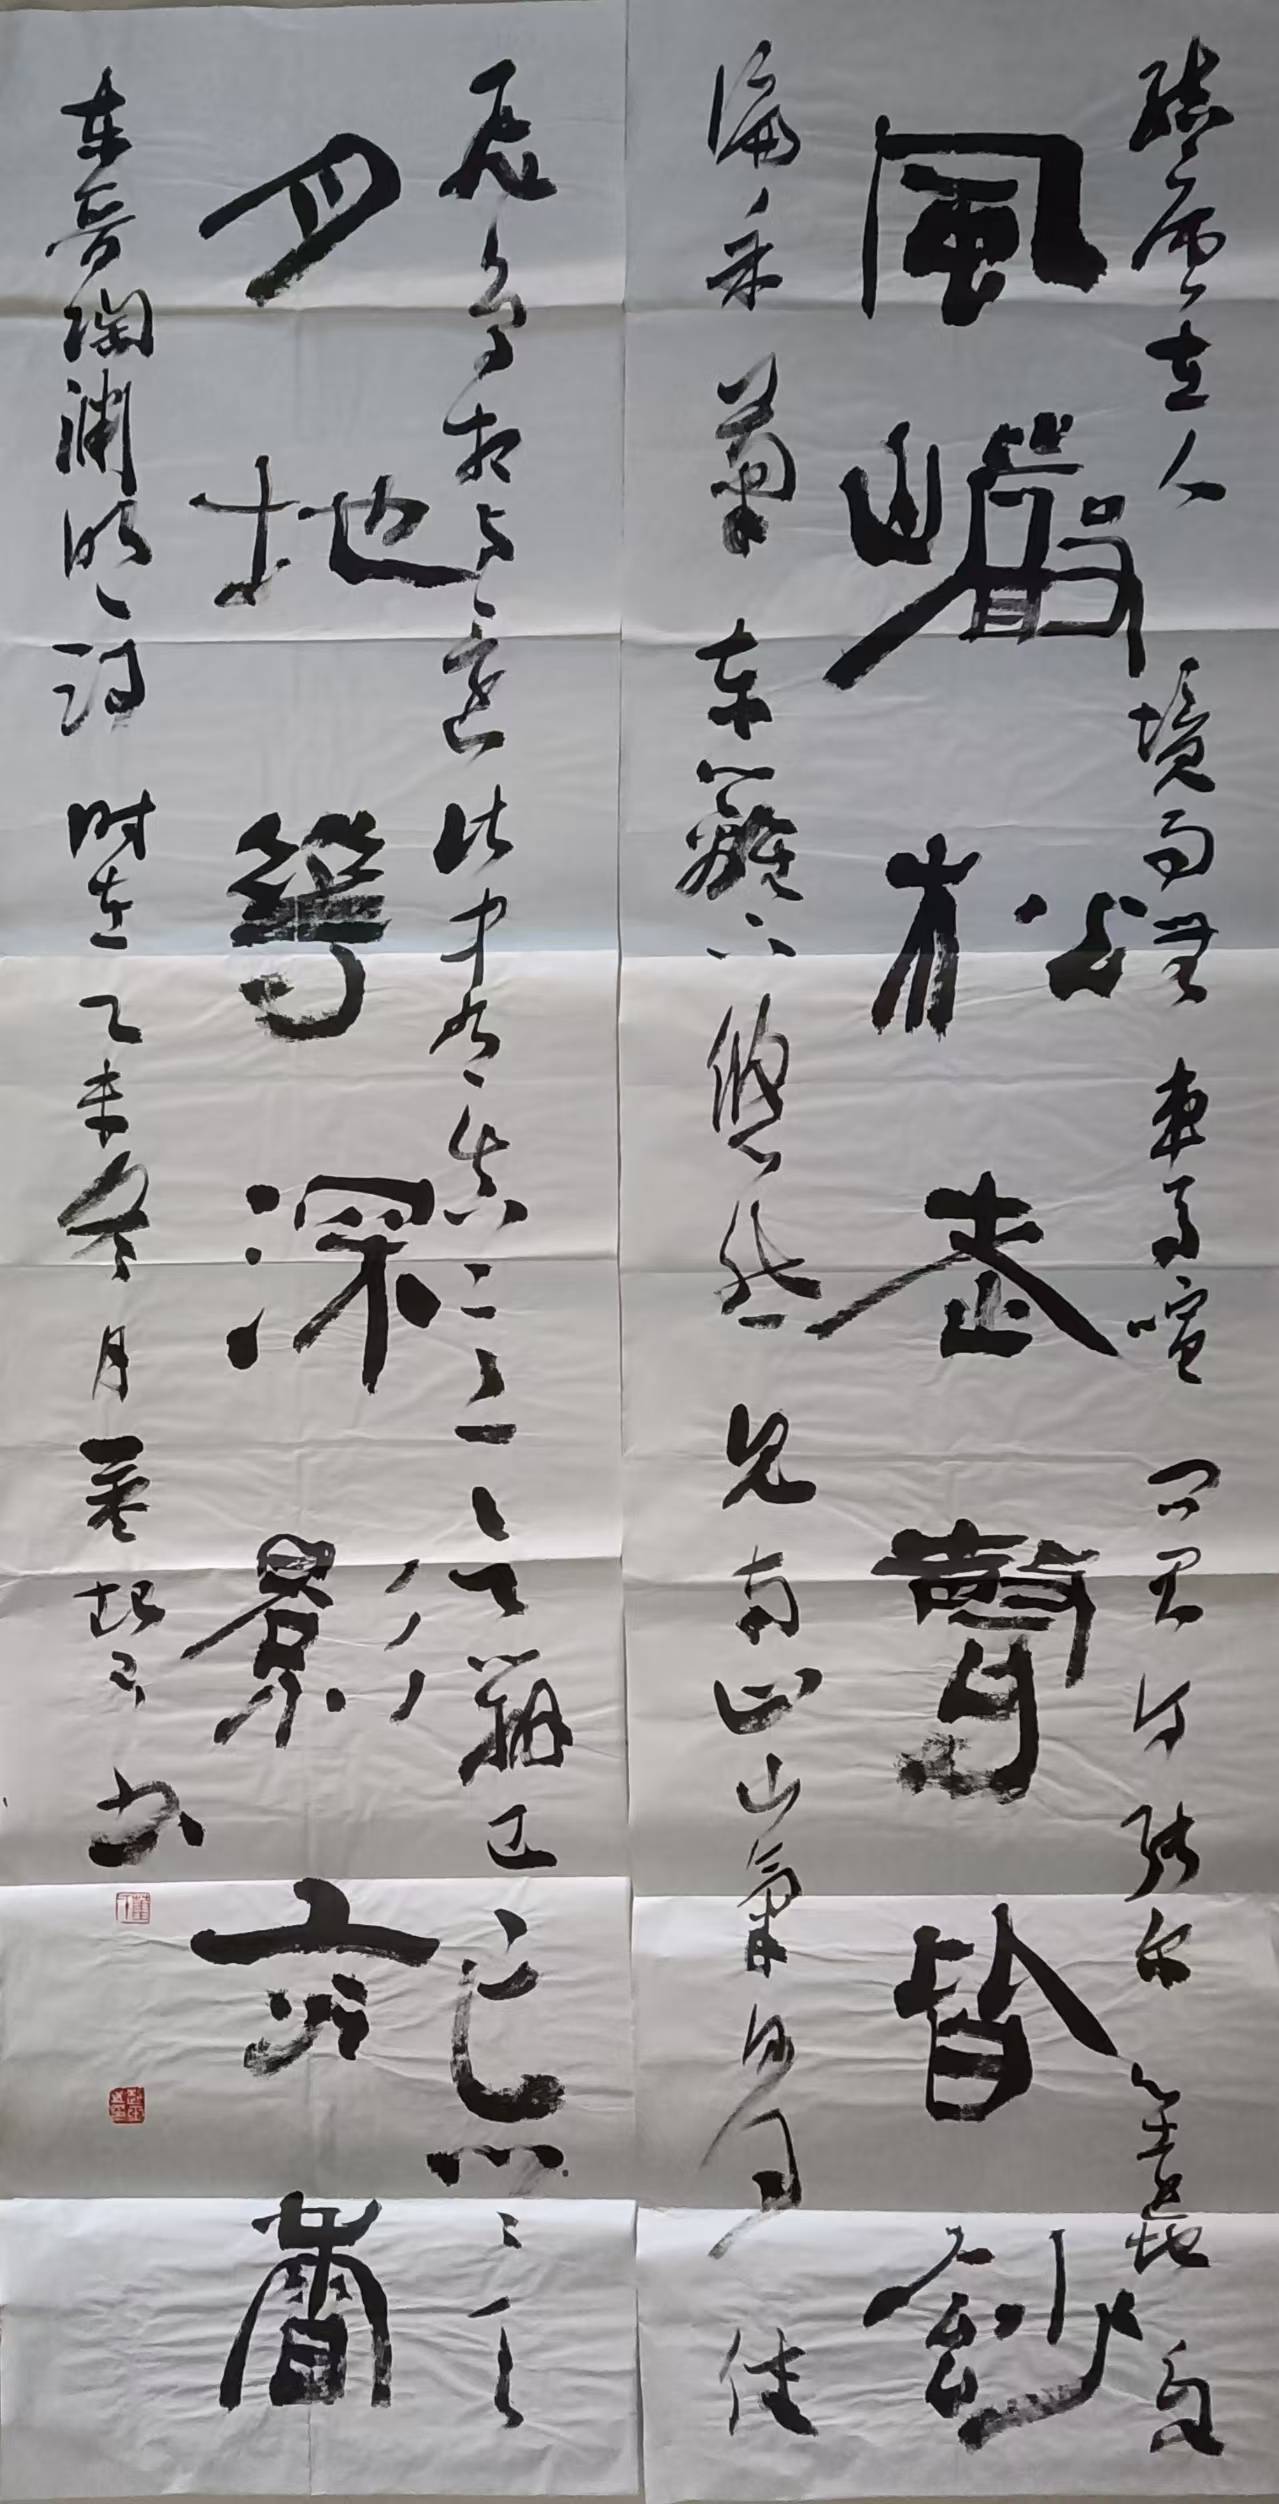 結廬在人境而無車馬喧問君何能爾心遠地自
風巖松聲皆玅
偏采菊東籬下悠然見南山山氣日夕佳
飛鳥相與還此中有真意欲辨已忘言
月地華深影亦香
東晉陶淵明詩時在乙未冬月董書